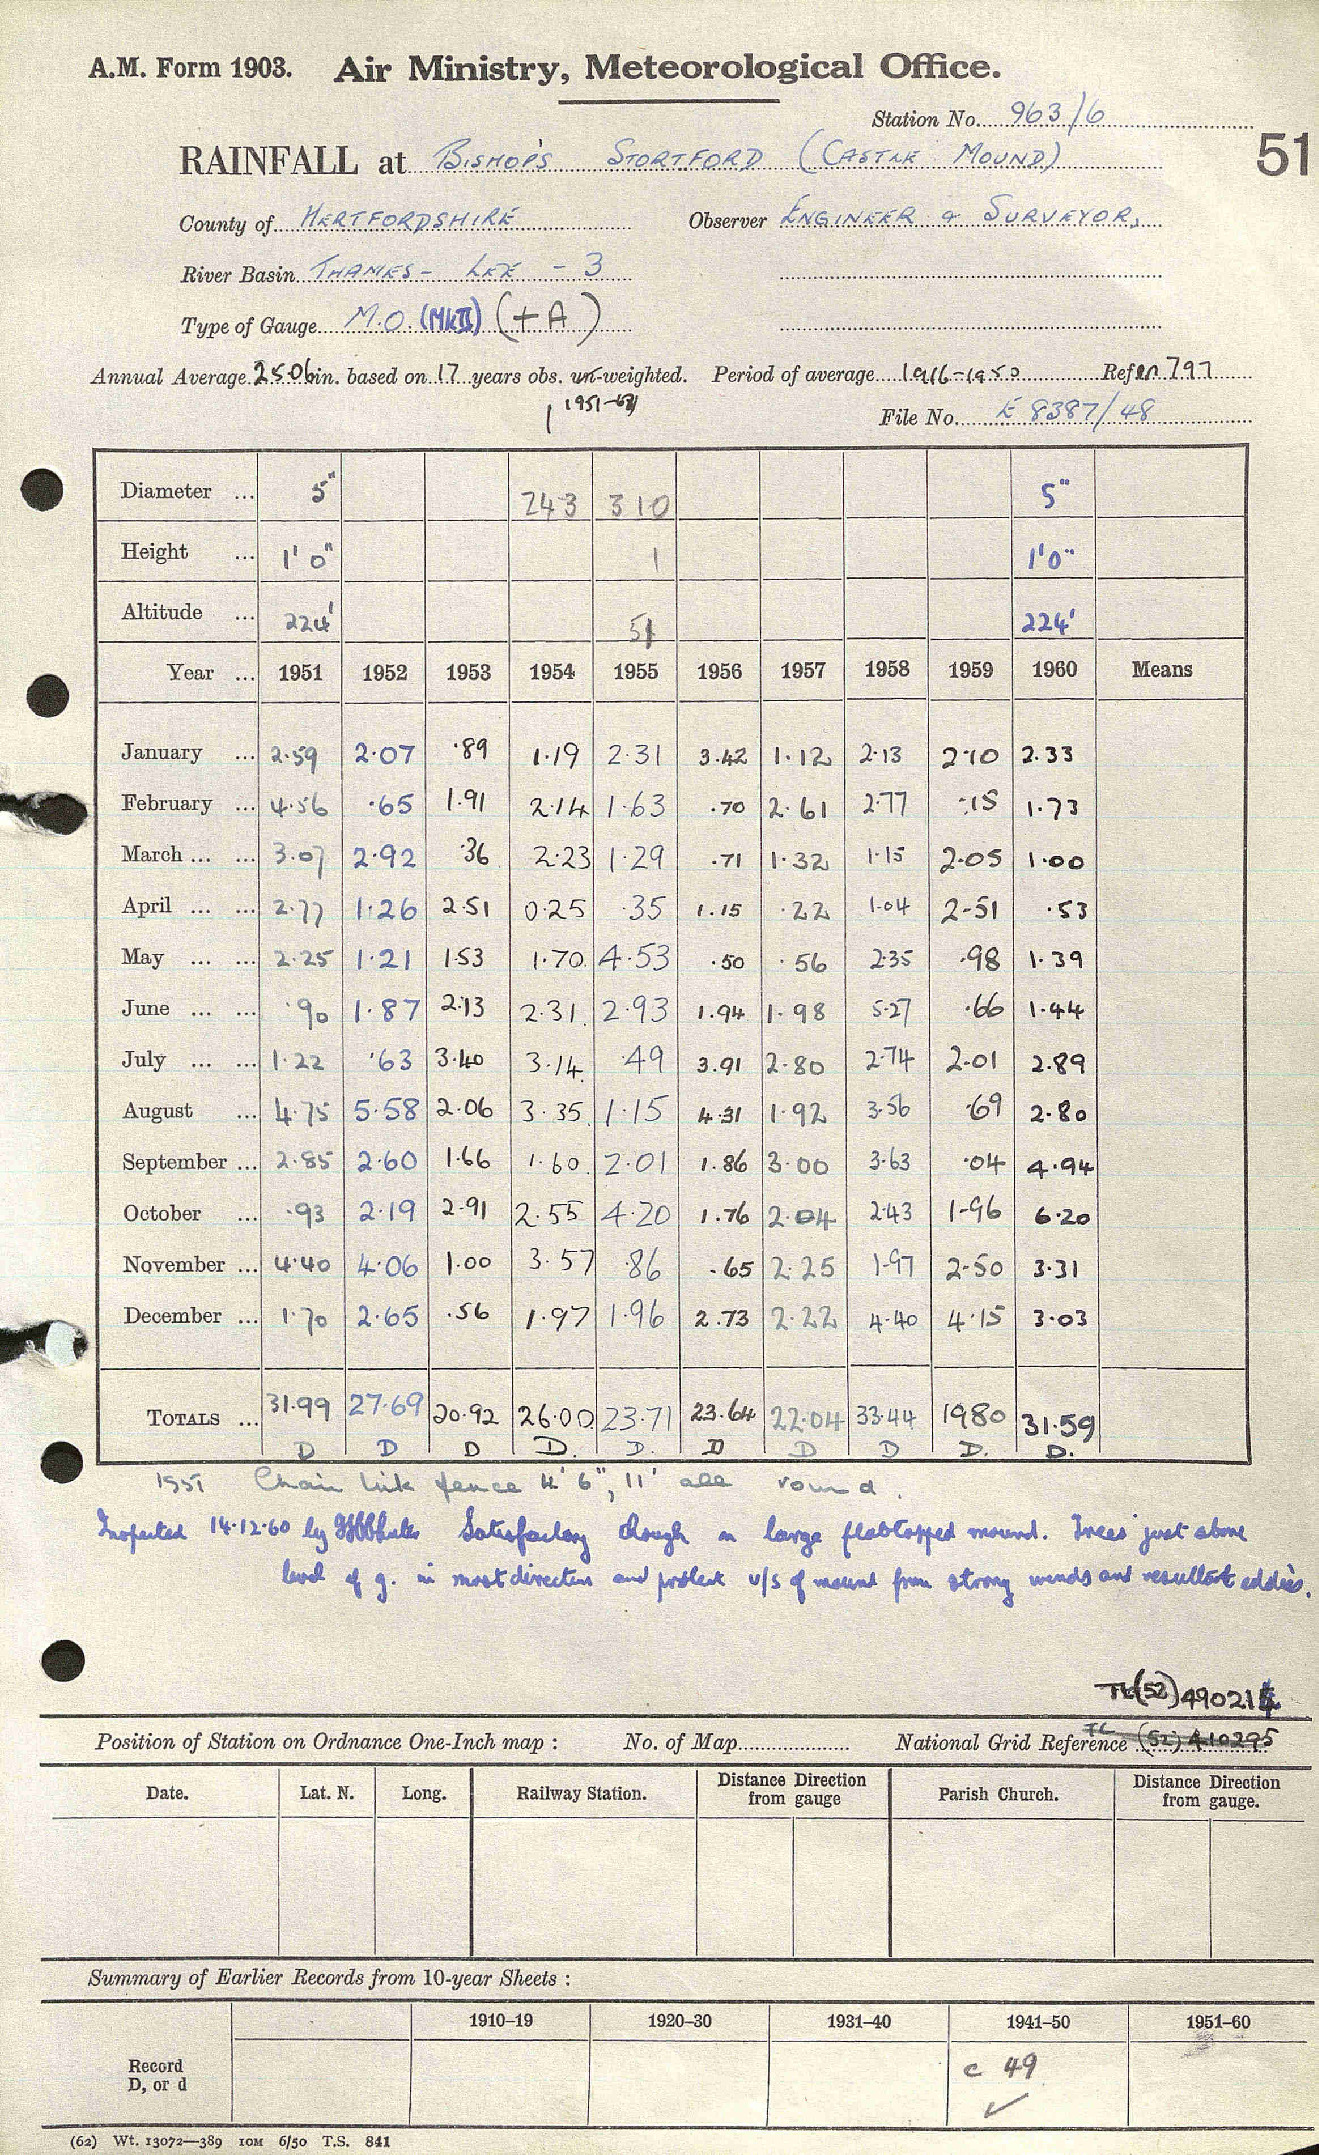 A.M. Form 1903. Air Ministry, Meteorological Office.
Station No. 963/6
51
RAINFALL at BISHOP'S STORTFORD (CASTLE MOUND)
County of HERTFORDSHIRE Observer ENGINEER & SURVEYOR,
River Basin THAMES - LEE - 3
Type of Gauge M.O. (MkII) (+A)
Annual Average 25.06 in. based on 17 years obs. un-weighted. Period of average 1916-1950 Ref en 797
1951-67
File No. E 8387/48
Diameter ... 5" 243 310 5"
Height ... 1' 0" 1 1'0"
Altitude ... 224' 51 224'
Year ... 1951 1952 1953 1954 1955 1956 1957 1958 1959 1960 Means
January ... 2.59 2.07 .89 1.19 2.31 3.42 1.12 2.13 2.10 2.33
February ... 4.56 .65 1.91 2.14 1.63 .70 2.61 2.77 .15 1.73
March ... ... 3.07 2.92 .36 2.23 1.29 .71 1.32 1.15 2.05 1.00
April ... ... 2.77 1.26 2.51 0.25 .35 1.15 .22 1.04 2.51 .53
May ... ... 2.25 1.21 1.53 1.70 4.53 .50 .56 2.35 .98 1.39
June ... ... .90 1.87 2.13 2.31 2.93 1.94 1.98 5.27 .66 1.44
July ... ... 1.22 .63 3.40 3.14 .49 3.91 2.80 2.74 2.01 2.89
August ... 4.75 5.58 2.06 3.35 1.15 4.31 1.92 3.56 .69 2.80
September ... 2.85 2.60 1.66 1.60 2.01 1.86 3.00 3.63 .04 4.94
October ... .93 2.19 2.91 2.55 4.20 1.76 2.04 2.43 1.96 6.20
November ... 4.40 4.06 1.00 3.57 .86 .65 2.25 1.97 2.50 3.31
December ... 1.70 2.65 .56 1.97 1.96 2.73 2.22 4.40 4.15 3.03
TOTALS ... 31.99 27.69 20.92 26.00 23.71 23.64 22.04 33.44 19.80 31.59
D D D D. D. D D D D. D.
1951 Chain link fence 4' 6", 11' all round.
Inspected 14.12.60 by Satisfactory though on large flat topped mound. Trees just above
level of g. in most directions and protect u/s of mound from strong winds and resultant eddies.
TL(52) 490214
Position of Station on Ordnance One-Inch map : No. of Map.......... National Grid Reference TL (52) 410295
Date. Lat. N. Long. Railway Station. Distance Direction from gauge Parish Church. Distance Direction from gauge.
Summary of Earlier Records from 10-year Sheets :
1910–19 1920–30 1931–40 1941–50 1951–60
Record
D, or d
c 49
✓
(62) Wt. 13072—389 10M 6/50 T.S. 841